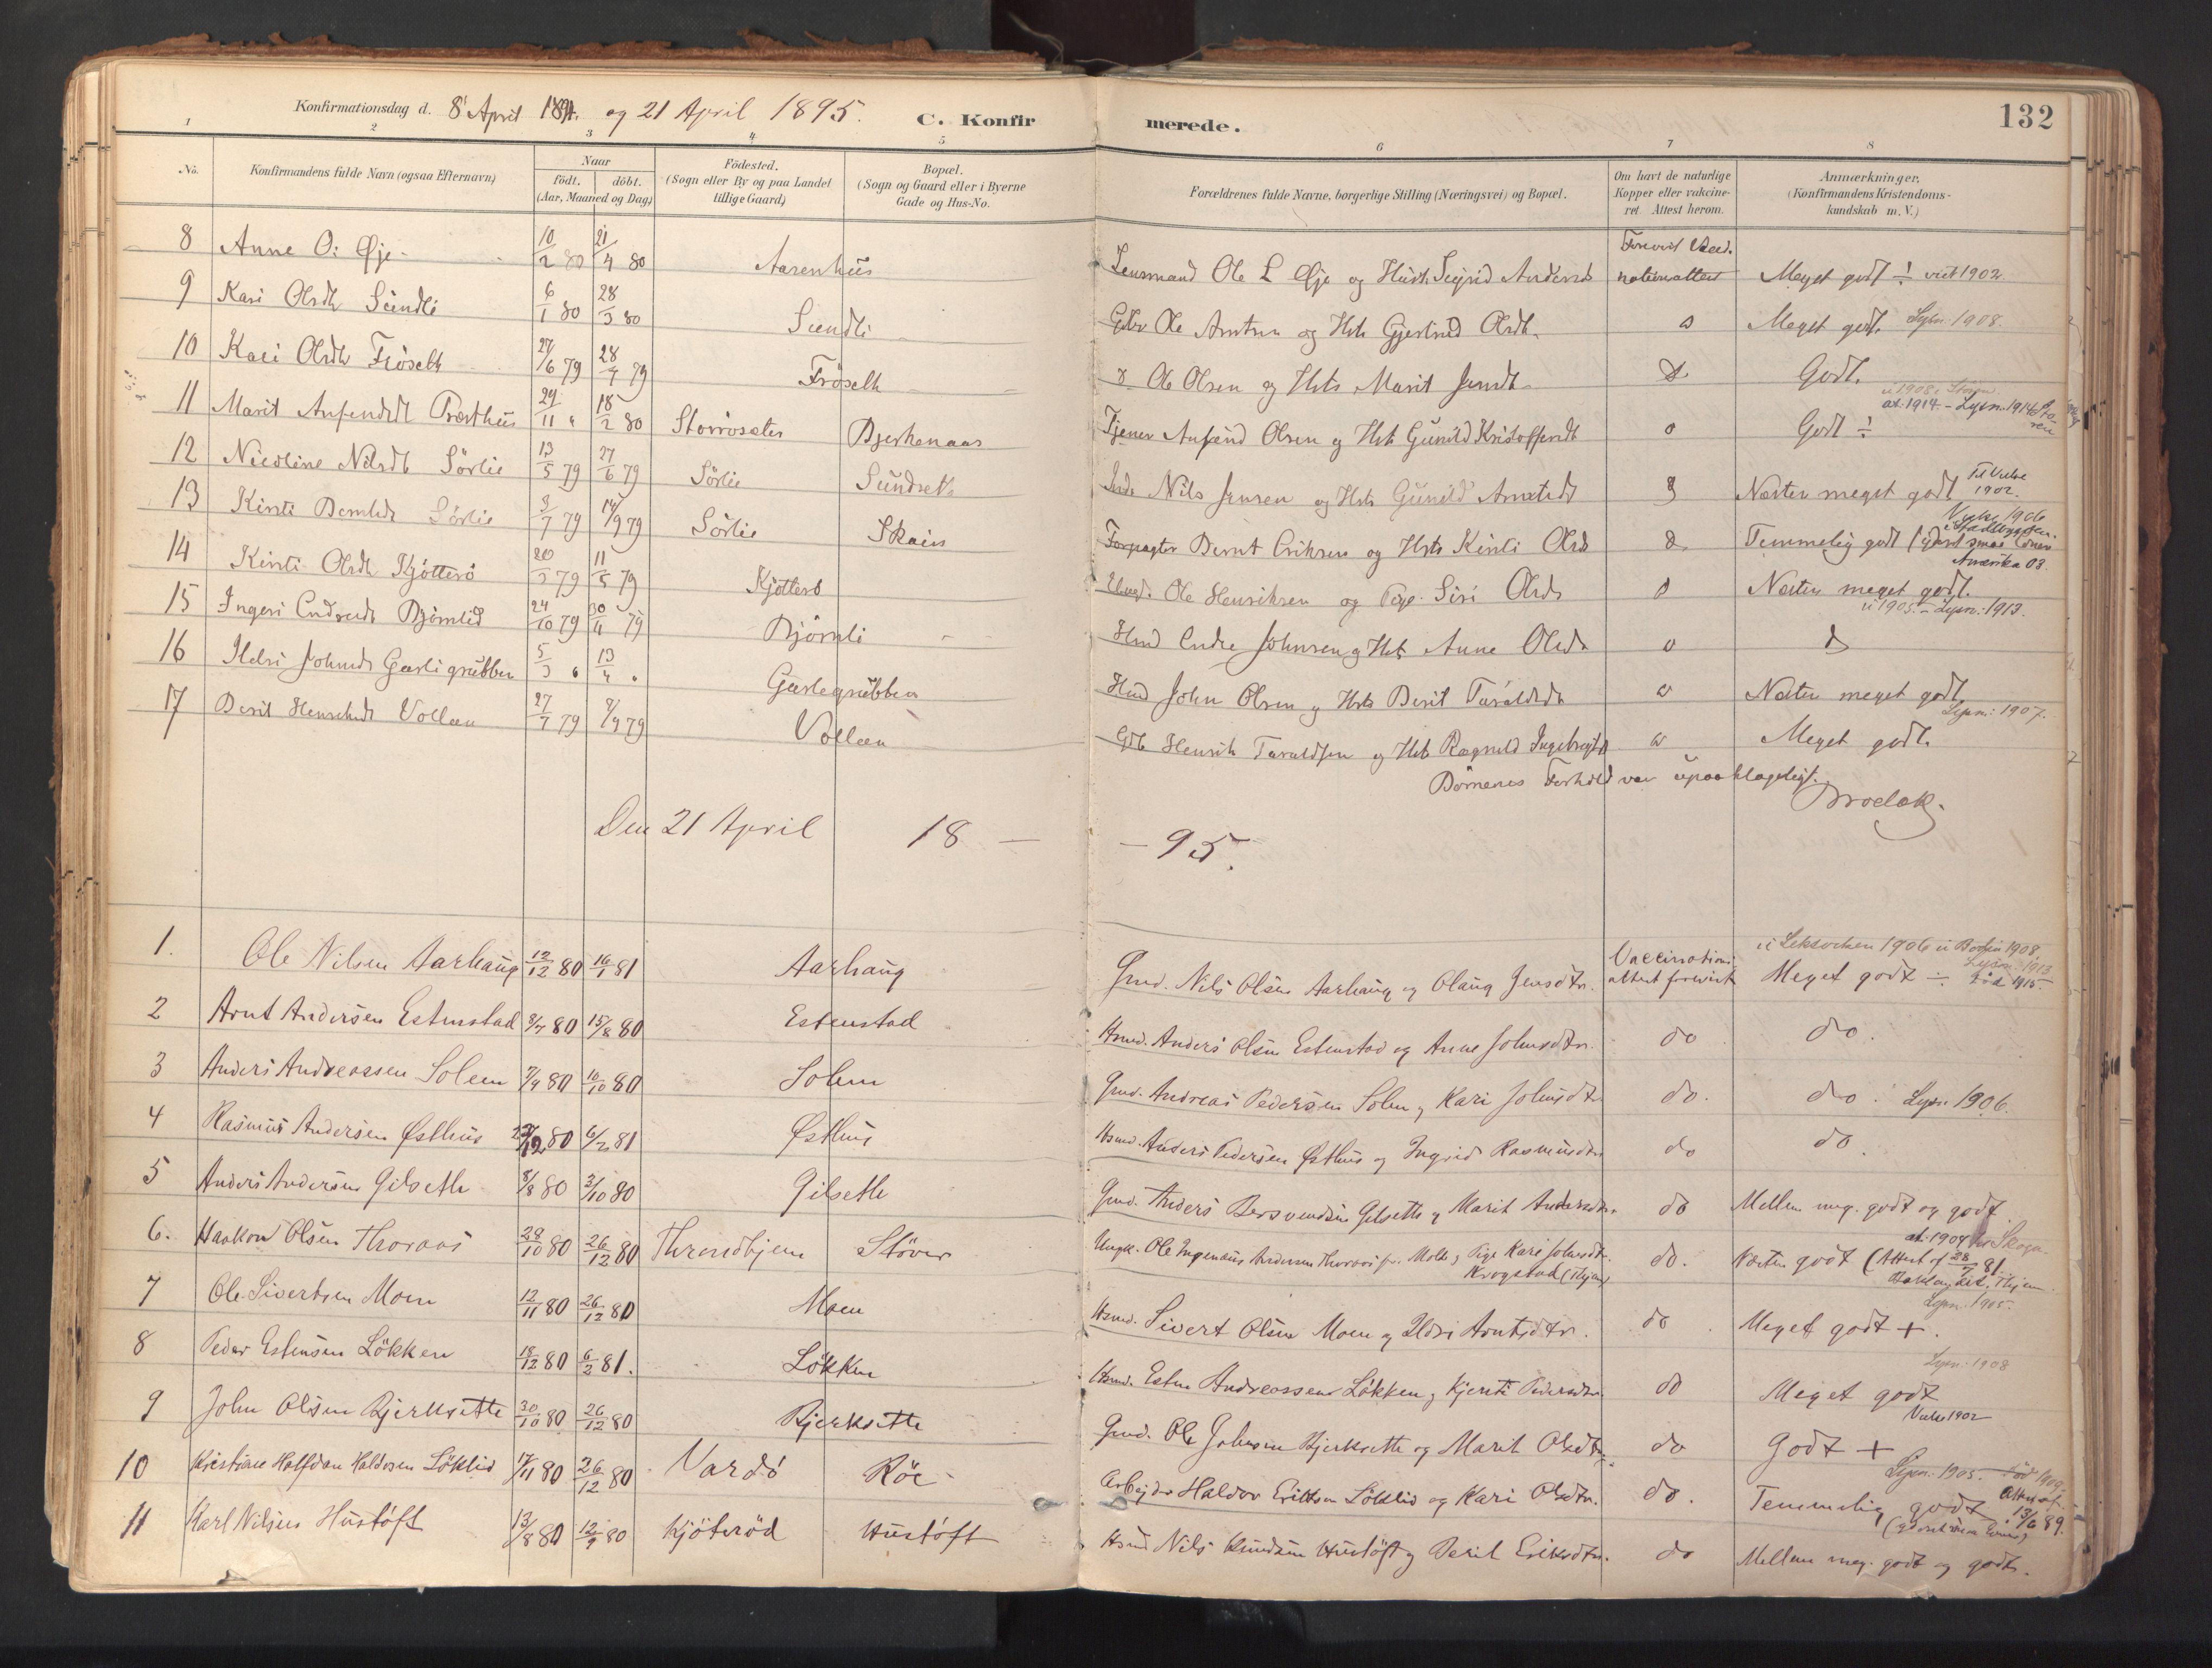 Konfirmationsdag d. 8' April 1894. og 21 April 1895.
C. Konfirmerede.
132
1 2 3 4 5 6 7 8
No. Konfirmandens fulde Navn (ogsaa Efternavn) Naar født. døbt. (Aar, Maaned og Dag) Fødested. (Sogn eller By og paa Landet tillige Gaard) Bopæl. (Sogn og Gaard eller i Byerne Gade og Hus-No. Forældrenes fulde Navne, borgerlige Stilling (Næringsvei) og Bopæl. Om havt de naturlige Kopper eller vakcineret. Attest herom. Anmærkninger. (Konfirmandens Kristendomskundskab m. V.)
8 Anne O: Øje 10/2 80 21/4 80 Aarenhus Lensmand Ole L Øje og Hustr. Sigrid Andersd Forevist Vaccinationsattest Meget godt ÷ viet 1902.
9 Kari Olsdt Sundli 6/1 80 28/3 80 Sundli Gbr Ole Arntsen og Hst Gjertrud Olsdt Meget godt. Lysn: 1908.
10 Kari Olsdt Frøseth 27/6 79 28/7 79 Frøseth Ole Olsen og Hst Marit Jensdt Godt.
11 Marit Anfendsdt Præsthus 29/11 " 18/2 80 Storrøsæter Bjerkenaas Tjener Anfend Olsen og Hst Gunild Kristoffersdt Godt ÷ at. 1914 - Lysn. 1914
12 Nicoline Nilsdt Sørlie 13/5 79 27/6 79 Sørlie Sundseth Nils Jensen og Hst Gunild Arntsdt Næsten meget godt Til Vielse 1902.
13 Kirsti Berntsdt Sørlie 3/7 79 14/9 79 Sørlie Skain Forpagter Bernt Eriksen og Hst Kirsti Olsd Temmelig godt Vielse 1906
14 Kirsti Olsdt Kjøtterø 20/3 79 11/5 79 Kjøtterø Ungk. Ole Henriksen og Pige Siri Olsdt Næsten meget godt. Amerika 03.
15 Ingeri Endresdt Bjørnlid 24/10 79 30/11 79 Bjørnli Hmd Endre Johnsen og Hst Anne Olsdt u 1905. - Lysn: 1913.
16 Ildri Johnsdt Garligrubben 5/3 " 13/4 " Garligrubben Hmd John Olsen og Hst Berit Taraldsdt Næsten meget godt.
17 Berit Henriksdt Vollan 27/7 79 7/9 79 Vollan Gbr Henrik Taraldsen og Hst Ragnild Ingebrigtsd Meget godt. Lysn: 1907.
Børnenes Forhold var upaaklageligt.
Den 21 April 18 — — 95.
1. Ole Nilsen Aarhaug 12/12 80 16/1 81 Aarhaug Gmd. Nils Olsen Aarhaug og Olaug Jensdtr. Vaccinations attest forevist Meget godt ÷ u Leksviken 1906 u Bodin 1908. Lysn: 1913 Død 1915.
2 Arnt Andersen Estenstad 8/7 80 15/8 80 Estenstad Hsmd. Anders Olsen Estenstad og Anne Johnsdtr. do do.
3 Anders Andreassen Solem 7/9 80 10/10 80 Solem Gmd. Andreas Pedersen Solem og Kari Johnsdtr do. do. Lysn 1906.
4 Rasmus Andersen Østhus 27/12 80 6/2 81 Østhus Hsmd. Anders Pedersen Østhus og Ingrid Rasmusdtr do do.
5 Anders Andersen Gilseth 8/8 80 3/10 80 Gilseth Gmd. Anders Bersvendsen Gilseth og Marit Andersdtr. do Mellem meg. godt og godt.
6. Haakon Olsen Thoraas 29/10 80 26/12 80 Throndhjem Støver Ungk. Ole Ingenaus Andersen Thoraas fr. Molde, Pige Kari Johnsdtr. Krogstad (Thjem) do. Næsten godt (Attest af 28/7 81
7 Ole Sivertsen Moen 12/11 80 26/12 80 Moen Hsmd. Sivert Olsen Moen og Ildri Arntsdtr. do Meget godt +. Lysn. 1905.
8 Peder Estensen Løkken 18/12 80 6/2 81. Løkken Hsmd. Esten Andreassen Løkken, Kjersti Pedersdtr do Meget godt Lysn: 1908
9 John Olsen Bjerksette 30/10 80 26/12 80 Bjerksette Gmd. Ole Johnsen Bjerksette og Marit Olsdtr. do Godt + Vielse 1902
10 Kristian Halfdan Haldorsen Løklid 17/11 80 26/12 80 Vardö Röe Arbejder Haldor Eriksen Løklid og Kari Olsdtr. do. Temmelig godt Lysn. 1905. Attest af 13/6 89.
11 Karl Nilsen Hustøft 13/8 80 12/9 80 Kjøterød Hustøft Hsmd Nils Knudsen Hustøft og Berit Eriksdtr. do Mellem meg. godt og godt.